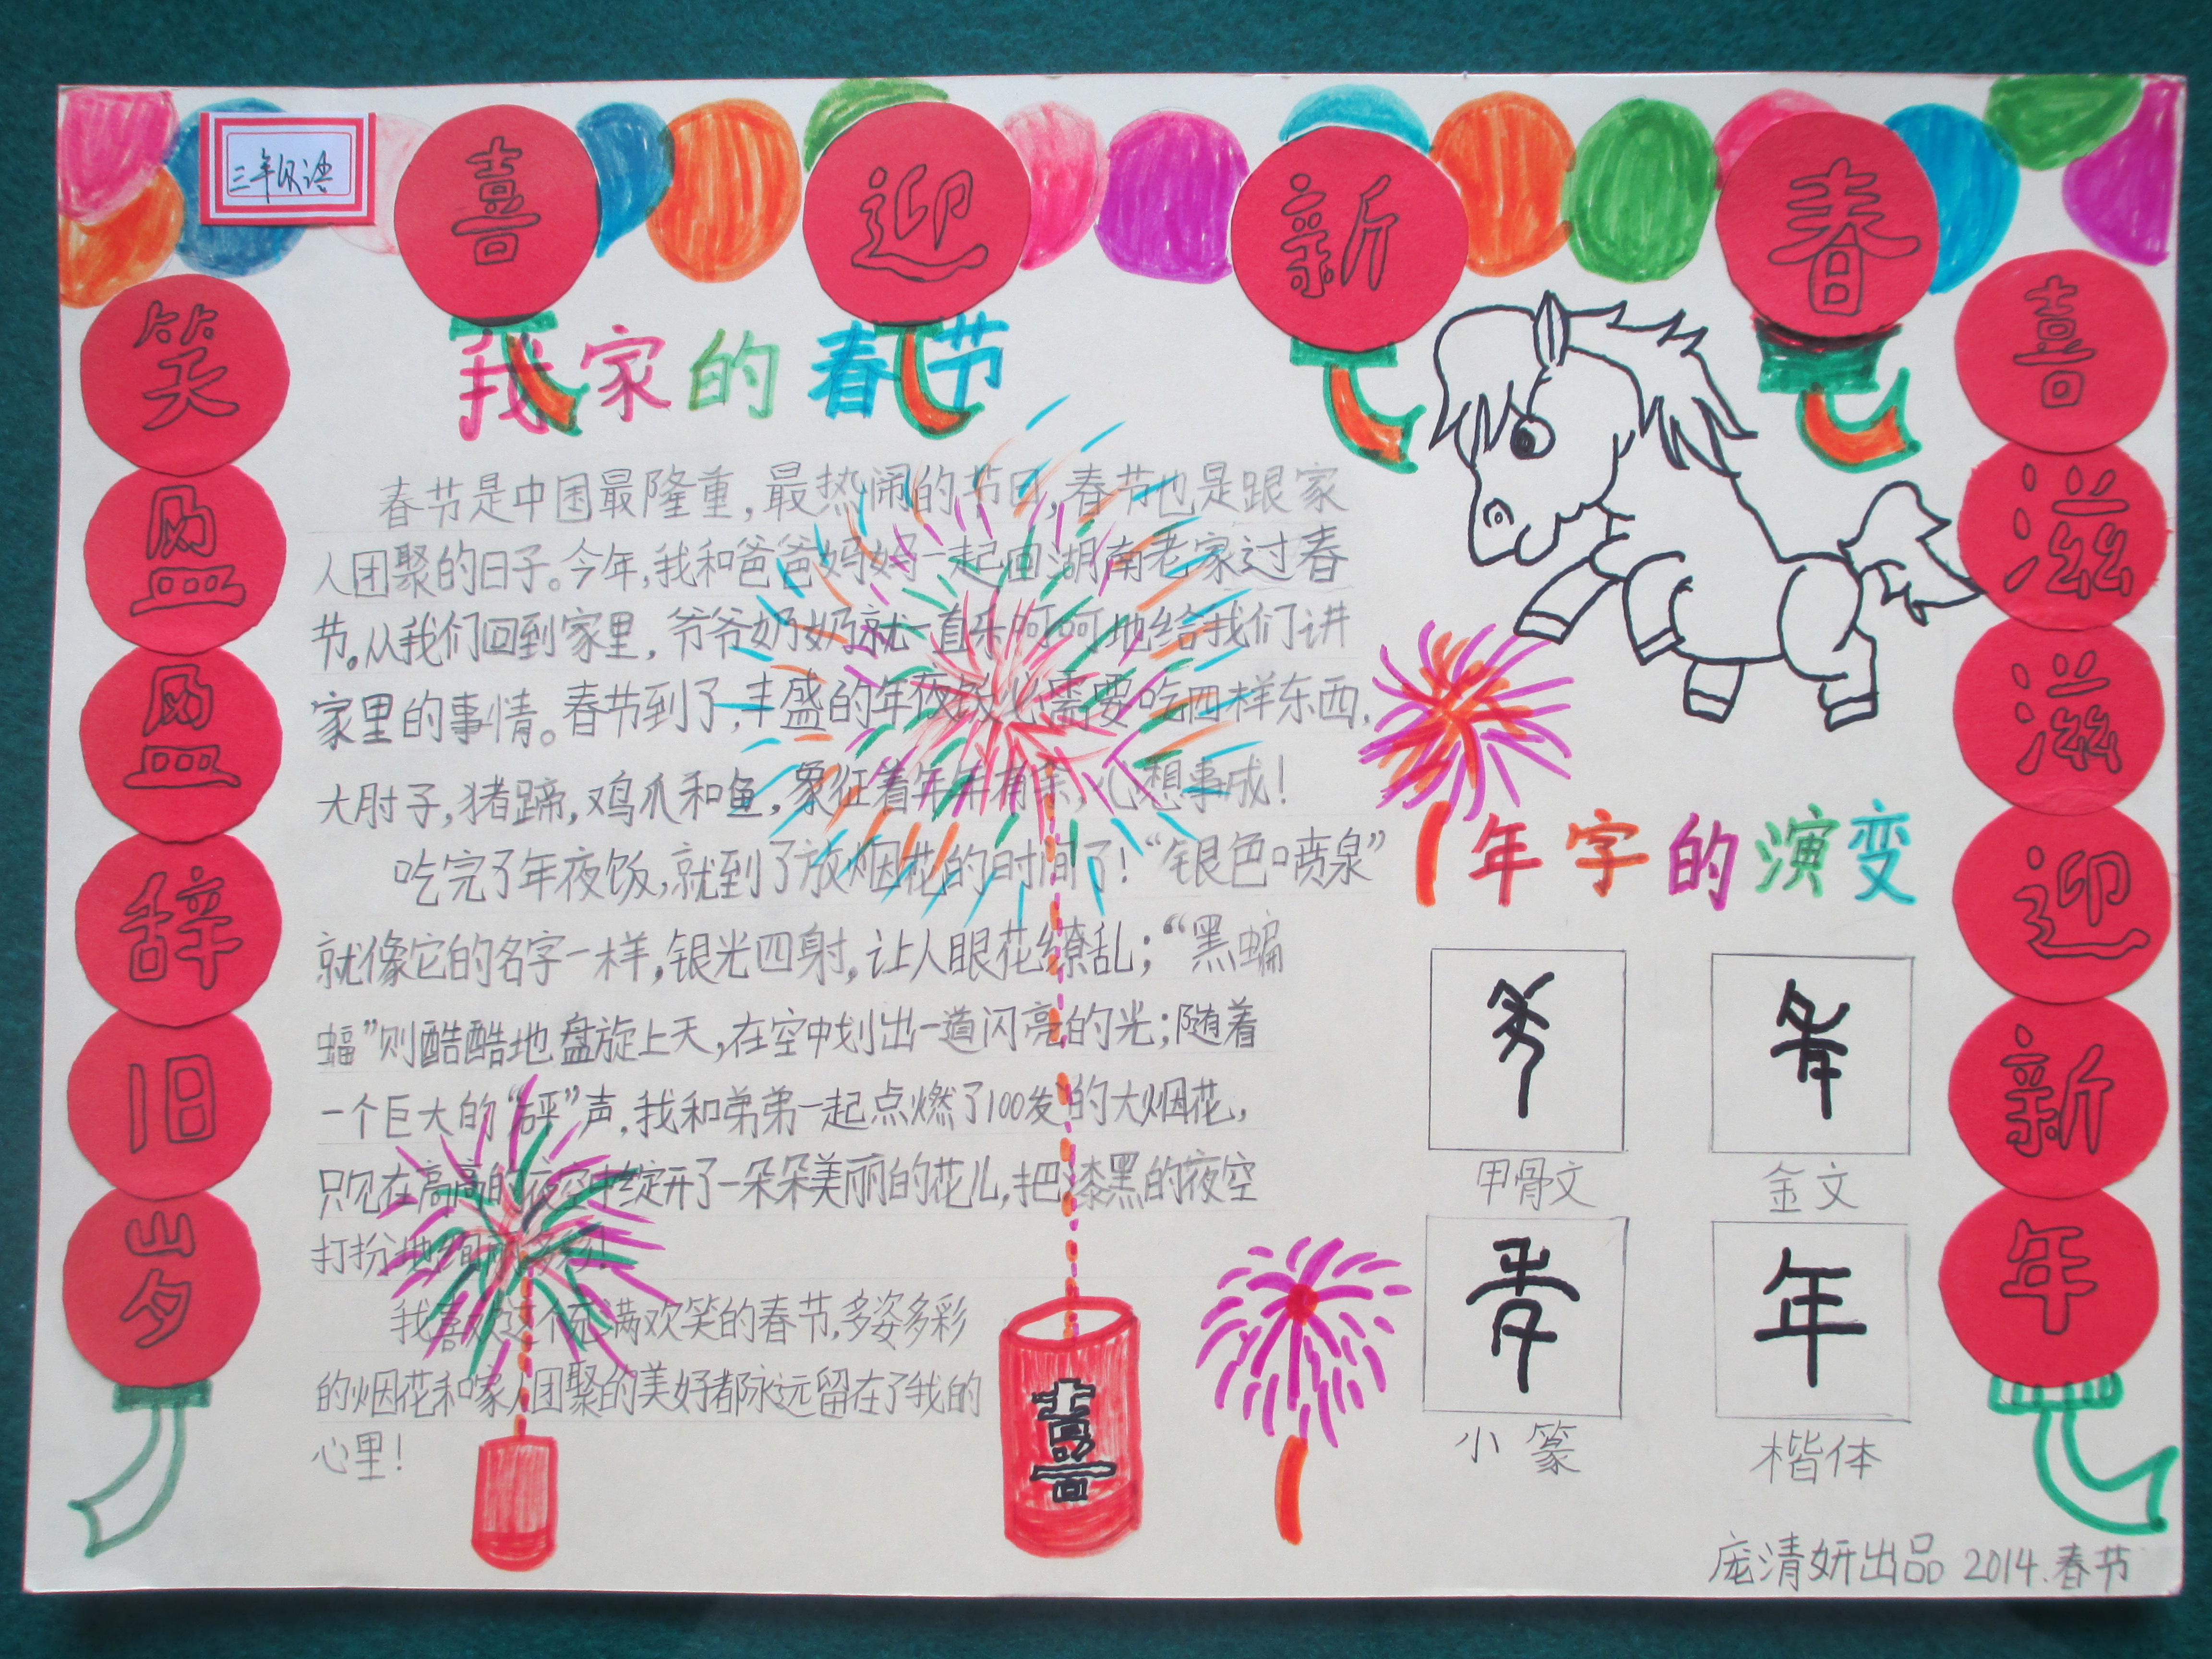 喜迎新春
笑盈盈辞旧岁
喜滋滋迎新年
我家的春节
春节是中国最隆重，最热闹的节日，春节也是跟家
人团聚的日子。今年，我和爸爸妈妈一起回湖南老家过春
节。从我们回到家里，爷爷奶奶就一直乐呵呵地给我们讲
家里的事情。春节到了，丰盛的年夜饭必需要吃四样东西，
大肘子，猪蹄，鸡爪和鱼，象征着年年有余，心想事成！
吃完了年夜饭，就到了放烟花的时间了！“银色喷泉”
就像它的名字一样，银光四射，让人眼花缭乱；“黑蝙
蝠”则酷酷地盘旋上天，在空中划出一道闪亮的光；随着
一个巨大的“砰”声，我和弟弟一起点燃了100发的大烟花，
只见在高高的夜空中绽开了一朵朵美丽的花儿，把漆黑的夜空
打扮地绚丽多彩！
我喜欢这个充满欢笑的春节，多姿多彩
的烟花和家人团聚的美好都永远留在了我的
心里！
年字的演变
甲骨文
金文
小篆
年
楷体
喜
庞清妍出品 2014.春节